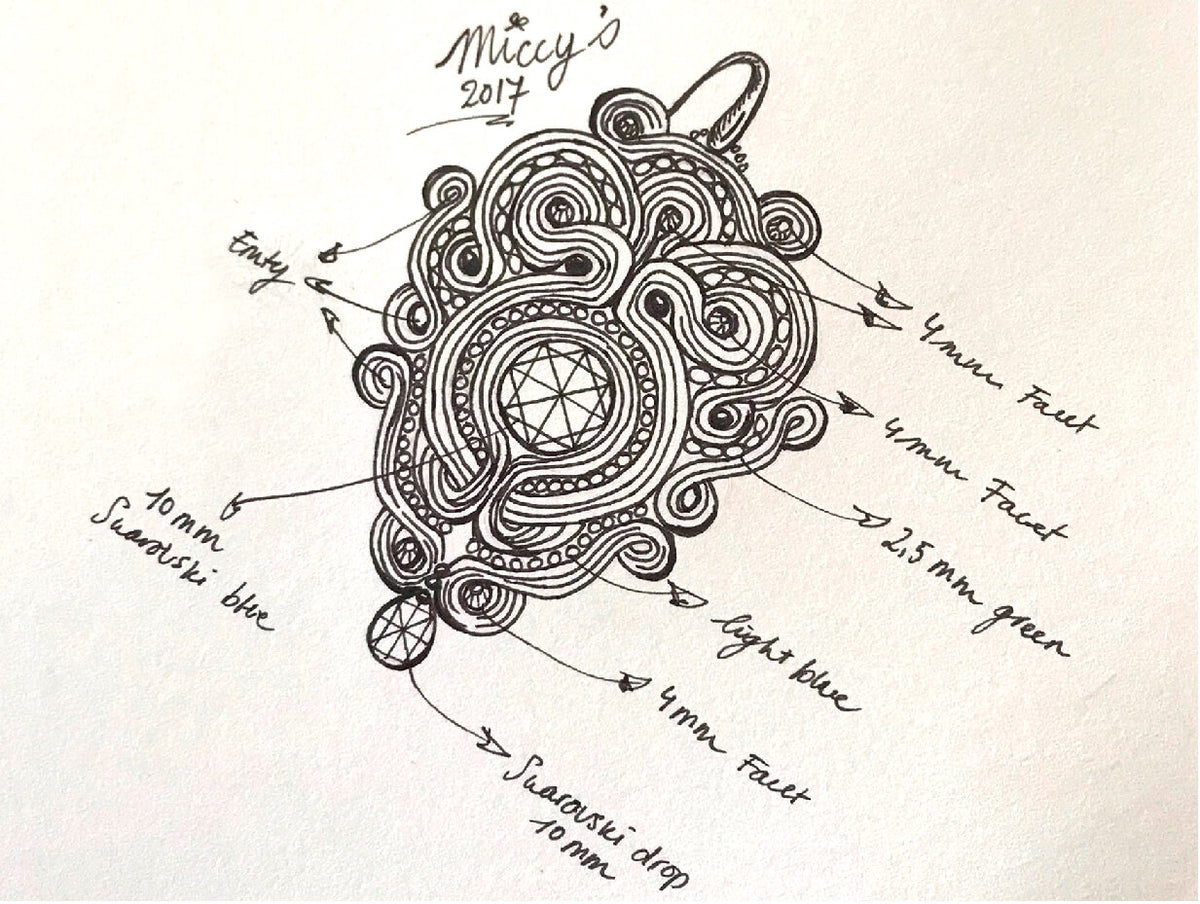 Miccy's
2017
Emty
4mm Facet
4mm Facet
10mm
Swarovski blue
2,5mm green
light blue
4mm Facet
Swarovski drop
10mm